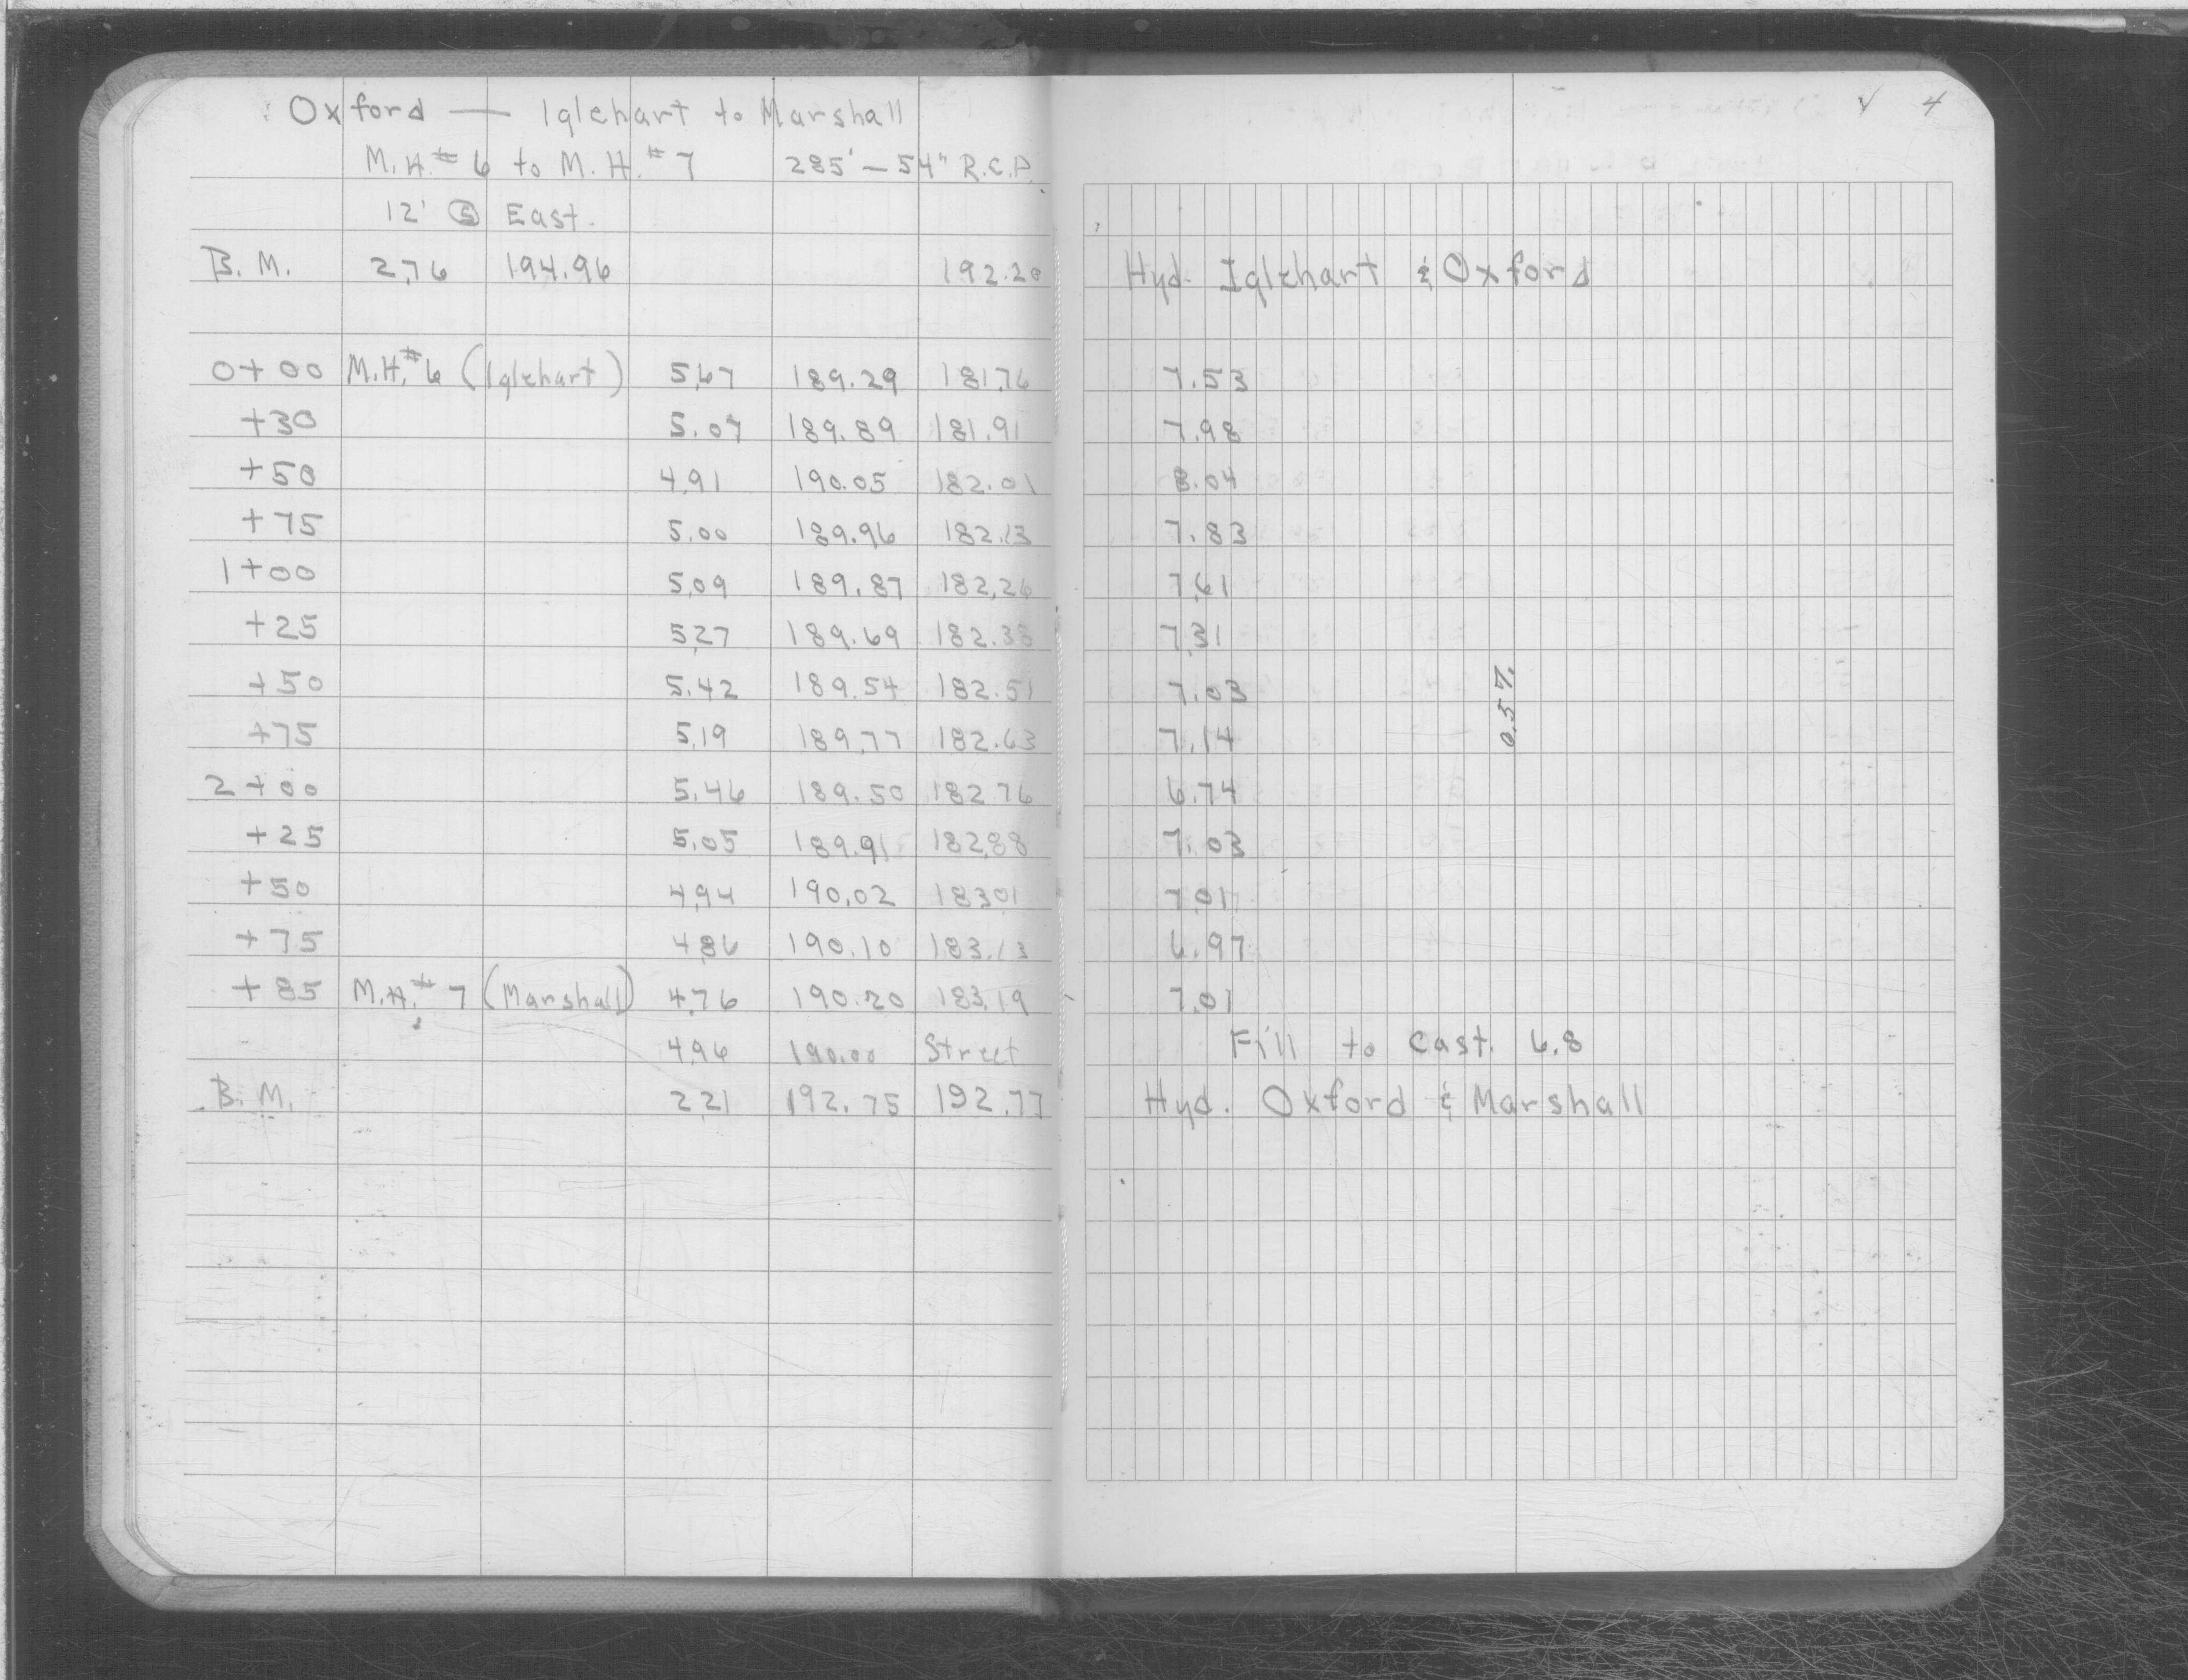 Oxford — Iglehart to Marshall
M.H.# 6 to M.H.# 7 285' — 54" R.C.P.
12' Ⓢ East.
B.M. 2.76 194.96 192.20 Hyd. Iglehart & Oxford
0+00 M.H.# 6 (Iglehart) 5.67 189.29 181.76 7.53
+30 5.07 189.89 181.91 7.98
+50 4.91 190.05 182.01 8.04
+75 5.00 189.96 182.13 7.83
1+00 5.09 189.87 182.26 7.61
+25 5.27 189.69 182.38 7.31
+50 5.42 189.54 182.51 7.03
+75 5.19 189.77 182.63 7.14
2+00 5.46 189.50 182.76 6.74
+25 5.05 189.91 182.88 7.03
+50 4.94 190.02 183.01 7.01
+75 4.86 190.10 183.13 6.97
+85 M.H.# 7 (Marshall) 4.76 190.20 183.19 7.01
4.96 190.00 Street Fill to Cast. 6.8
B.M. 2.21 192.75 192.77 Hyd. Oxford & Marshall
√ 4